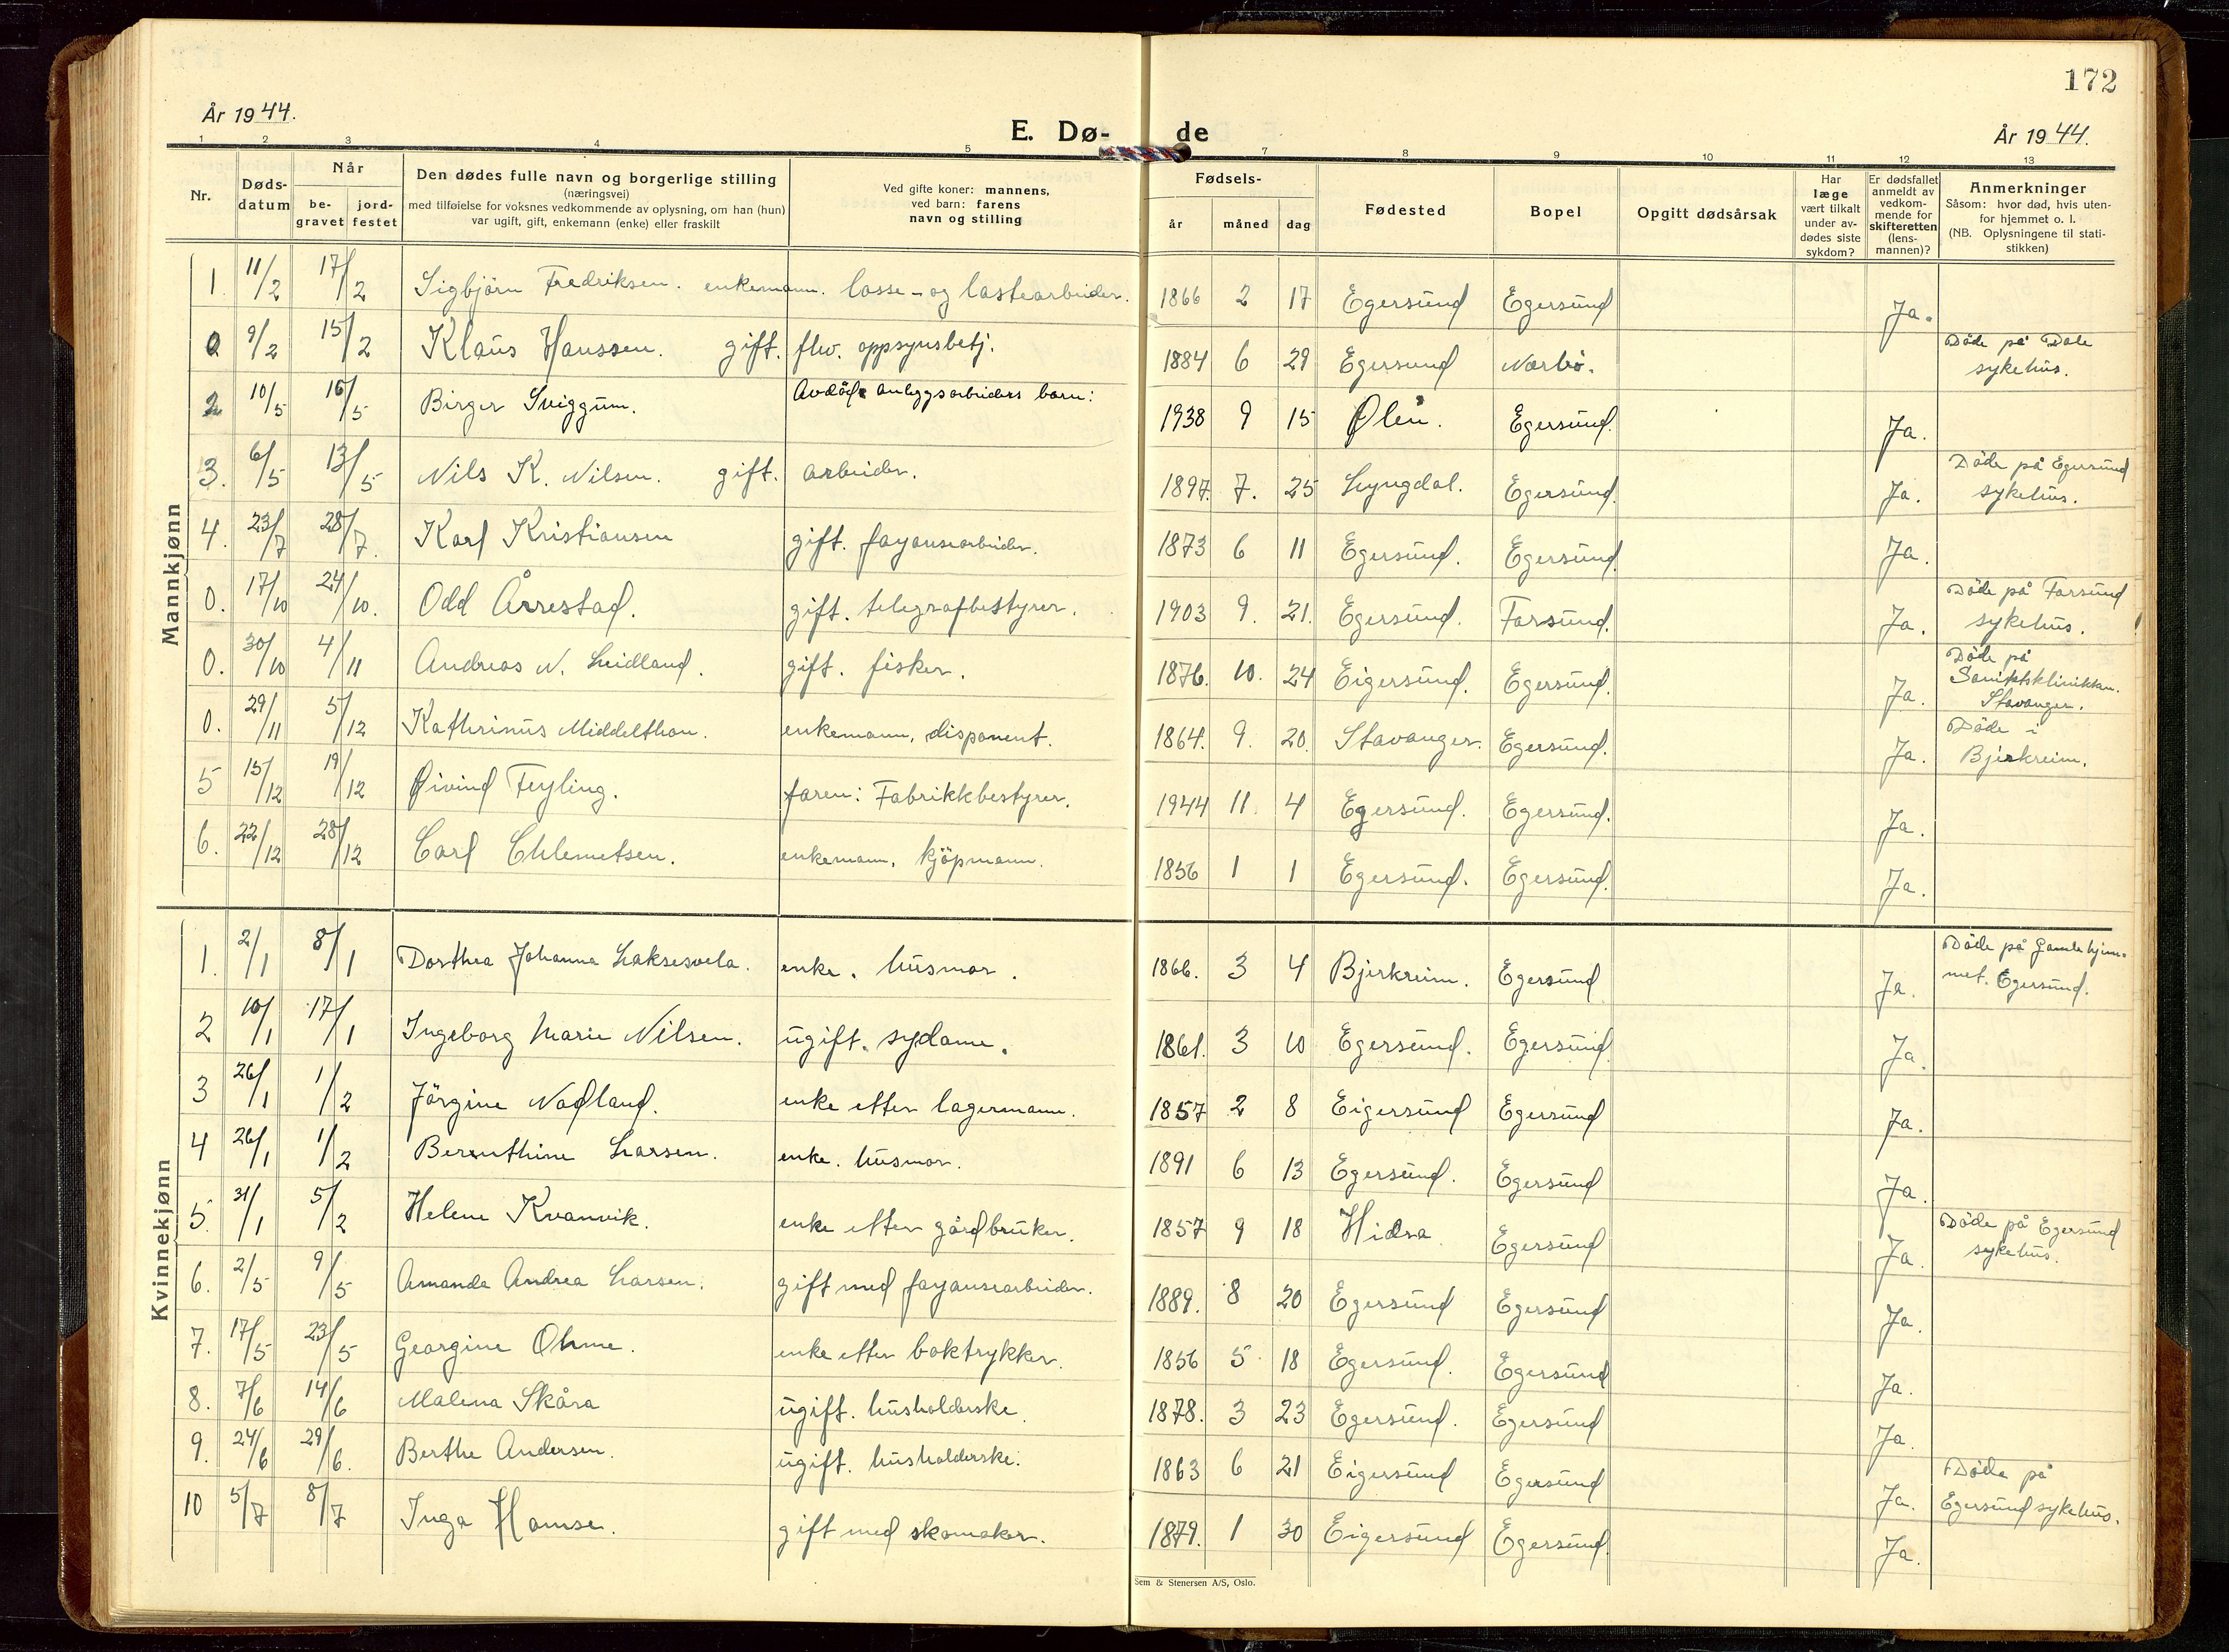 172
År 1944.
E. Dø- de
År 1944.
1 2 3 4 5 7 8 9 10 11 12 13
Nr.
Døds-
datum
Når
be-
gravet
jord-
festet
Den dødes fulle navn og borgerlige stilling
(næringsvei)
med tilføielse for voksnes vedkommende av oplysning, om han (hun)
var ugift, gift, enkemann (enke) eller fraskilt
Ved gifte koner: mannens,
ved barn: farens
navn og stilling
Fødsels-
år måned dag
Fødested
Bopel
Opgitt dødsårsak
Har
læge
vært tilkalt
under av-
dødes siste
sykdom?
Er dødsfallet
anmeldt av
vedkom-
mende for
skifteretten
(lens-
mannen)?
Anmerkninger
Såsom: hvor død, hvis uten-
for hjemmet o. l.
(NB. Oplysningene til stati-
stikken)
Mannkjønn
1. 11/2 17/2 Sigbjörn Fredriksen. enkemann. losse- og lastearbeider. 1866 2 17 Egersund Egersund Ja.
0 9/2 15/2 Klaus Hanssen. gift. flw. oppsynsbetj. 1884 6 29 Egersund Nærbö. Döde på Dale
sykehus.
2 10/5 16/5 Birger Sviggum. Avdöde anleggsarbeiders barn: 1938 9 15 Ølen. Egersund. Ja.
3. 6/5 13/5 Nils K. Nilsen. gift. arbeider. 1897. 7. 25 Lyngdal. Egersund. Ja. Döde på Egersund
sykehus.
4. 23/7 28/7. Karl Kristiansen gift. fayansearbeider. 1873 6 11 Egersund. Egersund. Ja.
0. 17/10 24/10. Odd Årrestad. gift. telegrafbestyrer. 1903 9. 21. Egersund. Farsund. Ja. Döde på Farsund
sykehus.
0. 30/10 4/11 Andreas N. Leidland. gift. fisker. 1876. 10. 24 Eigersund. Egersund. Ja. Döde på
Sanitetsklinikken.
Stavanger.
0. 29/11 5/12 Kathrinus Middelthon. enkemann, disponent. 1864. 9. 20. Stavanger. Egersund. Ja. Döde i
Bjerkreim.
5 15/12 19/12 Øivind Feyling. faren: Fabrikkbestyrer. 1944 11. 4 Egersund. Egersund. Ja.
6. 22/12 28/12 Carl Chlemetsen. enkemann, kjöpmann. 1856 1 1 Egersund. Egersund. Ja.
Kvinnekjønn
1. 2/1 8/1 Dorthea Johanna Laksesvela. enke. husmor. 1866. 3 4 Bjerkreim. Egersund Ja. Döde på Gamlehjem-
met. Egersund.
2 10/1 17/1 Ingeborg Marie Nilsen. ugift. sydame. 1861. 3 10 Egersund. Egersund Ja.
3 26/1 1/2 Jörgine Nodland. enke etter lagermann. 1857 2 8 Eigersund Egersund Ja.
4 26/1 1/2 Berenthine Larsen. enke. husmor. 1891 6 13 Egersund. Egersund Ja.
5. 31/1 5/2 Helene Kvanvik. enke etter gårdbruker. 1857 9 18 Hidra Egersund Ja. Döde på Egersund
sykehus.
6. 2/5 9/5 Amanda Andrea Larsen. gift med fayansearbeider. 1889. 8 20 Egersund Egersund Ja.
7. 17/5 23/5 Georgine Ohme. enke etter boktrykker. 1856 5 18 Egersund. Egersund Ja.
8. 7/6 14/6 Malena Skåra ugift. husholderske. 1878. 3 23 Egersund. Egersund Ja.
9. 24/6 29/6. Berthe Andersen. ugift. husholderske. 1863 6 21 Eigersund Egersund Ja. Döde på
Egersund sykehus.
10 5/7 8/7 Inga Hamse. gift med skomaker. 1879. 1 30 Eigersund Egersund. Ja.
Sem & Stenersen A/S, Oslo.